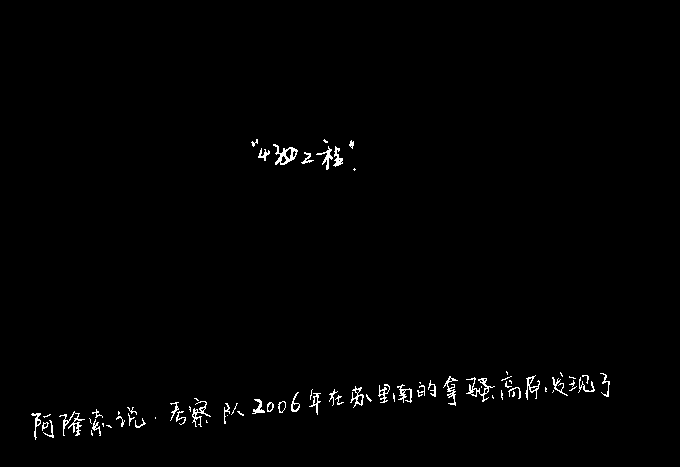 "430工程".
阿隆索说，考察队2006年在苏里南的拿骚高原发现了